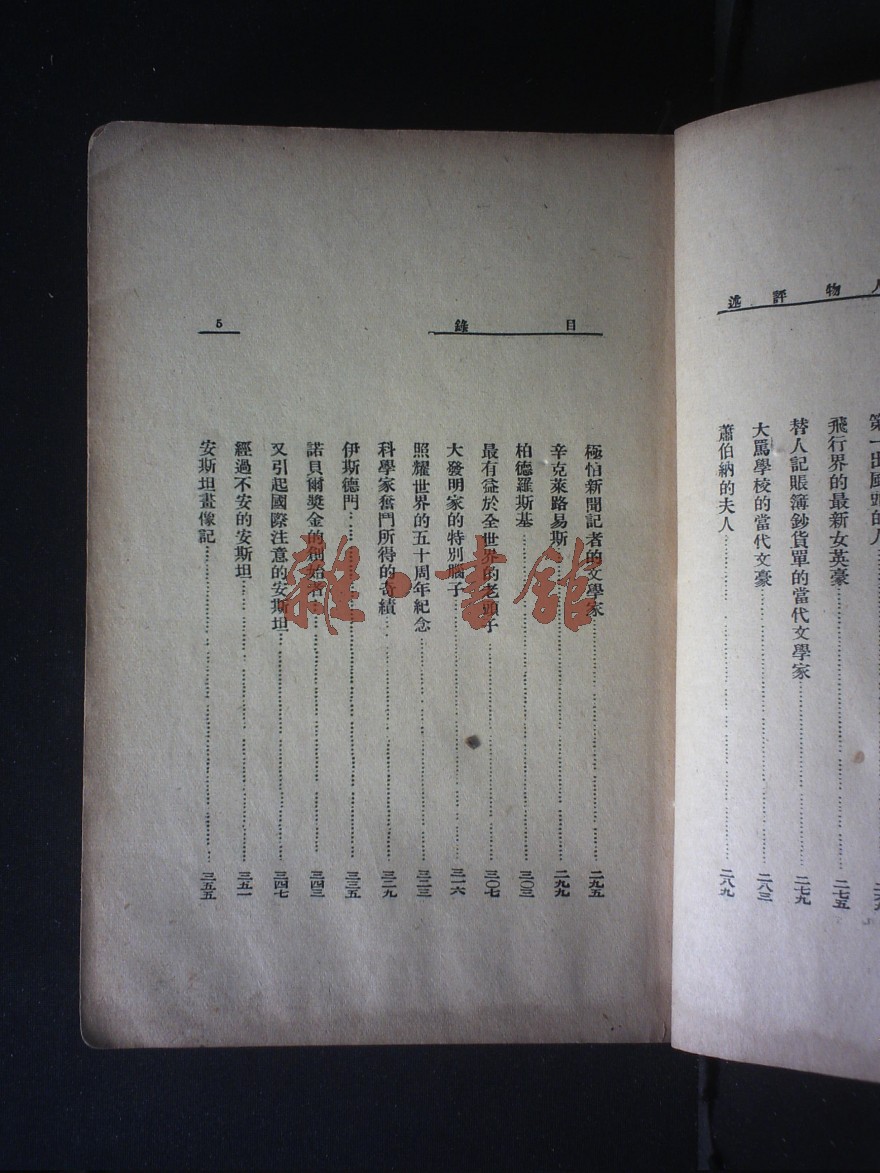 人物評述
第一出風頭的人
飛行界的最新女英豪……二七五
替人記賬簿鈔貨單的當代文學家……二七九
大罵學校的當代文豪……二八三
蕭伯納的夫人……二八九
目錄
5
極怕新聞記者的文學家……二九五
辛克萊路易斯……二九九
柏德羅斯基……三〇三
最有益於全世界的老頭子……三〇七
大發明家的特別腦子……三一六
照耀世界的五十周年紀念……三二三
科學家奮鬥所得的奇績……三二九
伊斯德門……三三五
諾貝爾獎金的創始者……三四三
又引起國際注意的安斯坦……三四七
經過不安的安斯坦……三五一
安斯坦畫像記……三五五
雜·書館